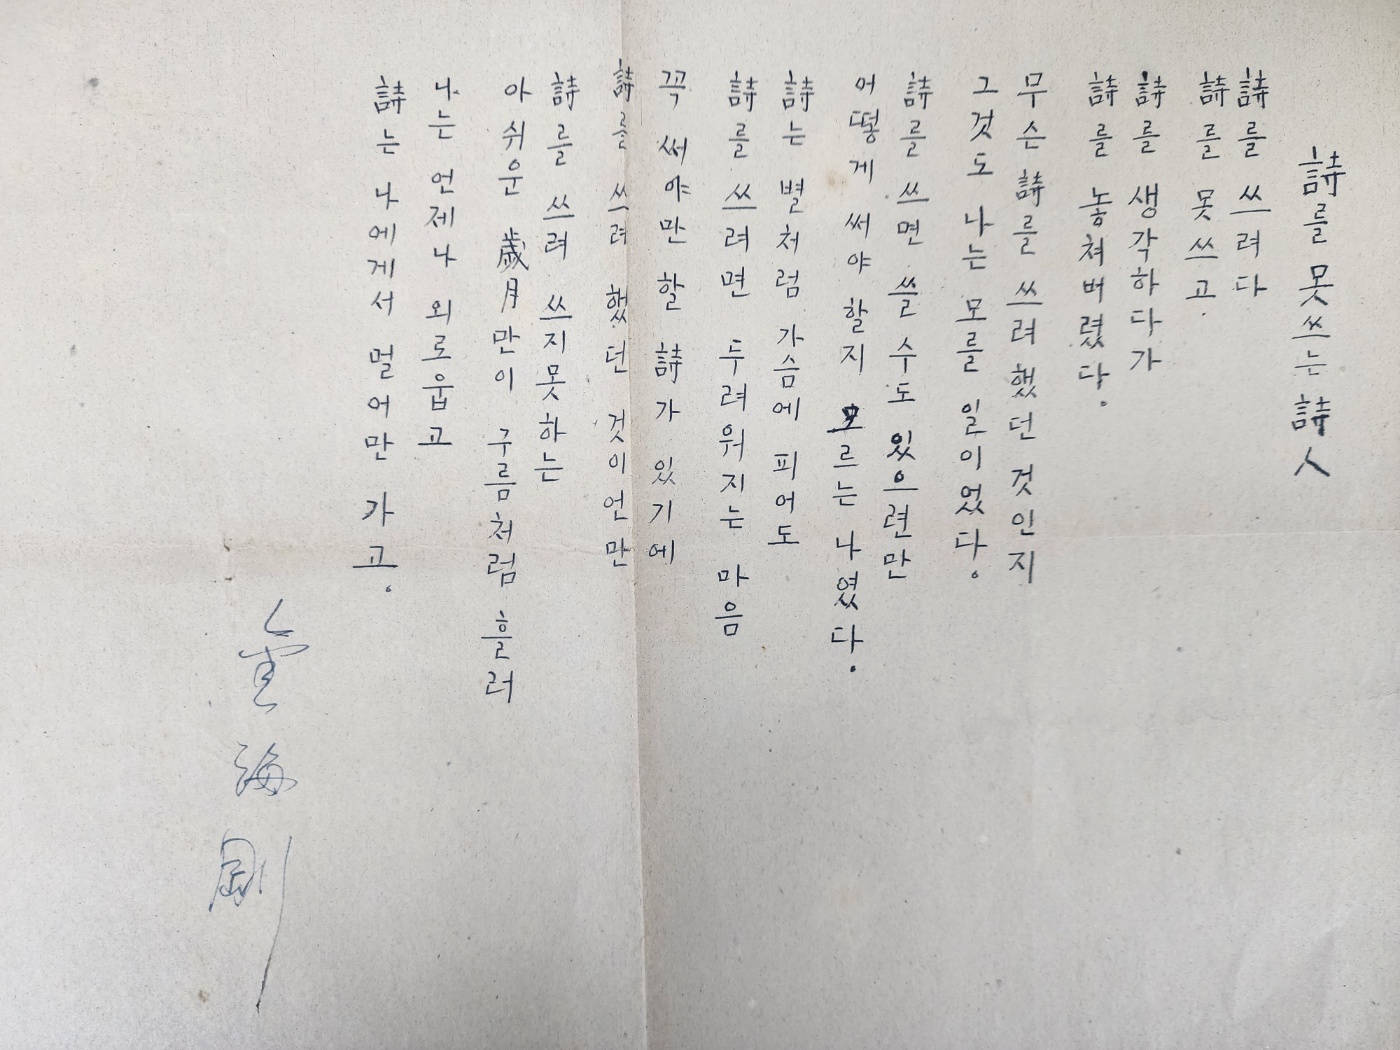 詩를 못쓰는 詩人
詩를 쓰려다
詩를 못 쓰고.
詩를 생각하다가
詩를 놓쳐버렸다.
무슨 詩를 쓰려했던 것인지
그것도 나는 모를 일이었다.
詩를 쓰면 쓸 수도 있으련만
어떻게 써야 할지 모르는 나였다.
詩는 별처럼 가슴에 피어도
詩를 쓰려면 두려워지는 마음
꼭 써야만 할 詩가 있기에
詩를 쓰려 했던 것이언만
詩를 쓰려 쓰지못하는
아쉬운 歲月만이 구름처럼 흘러
나는 언제나 외로웁고
詩는 나에게서 멀어만 가고.
金海剛